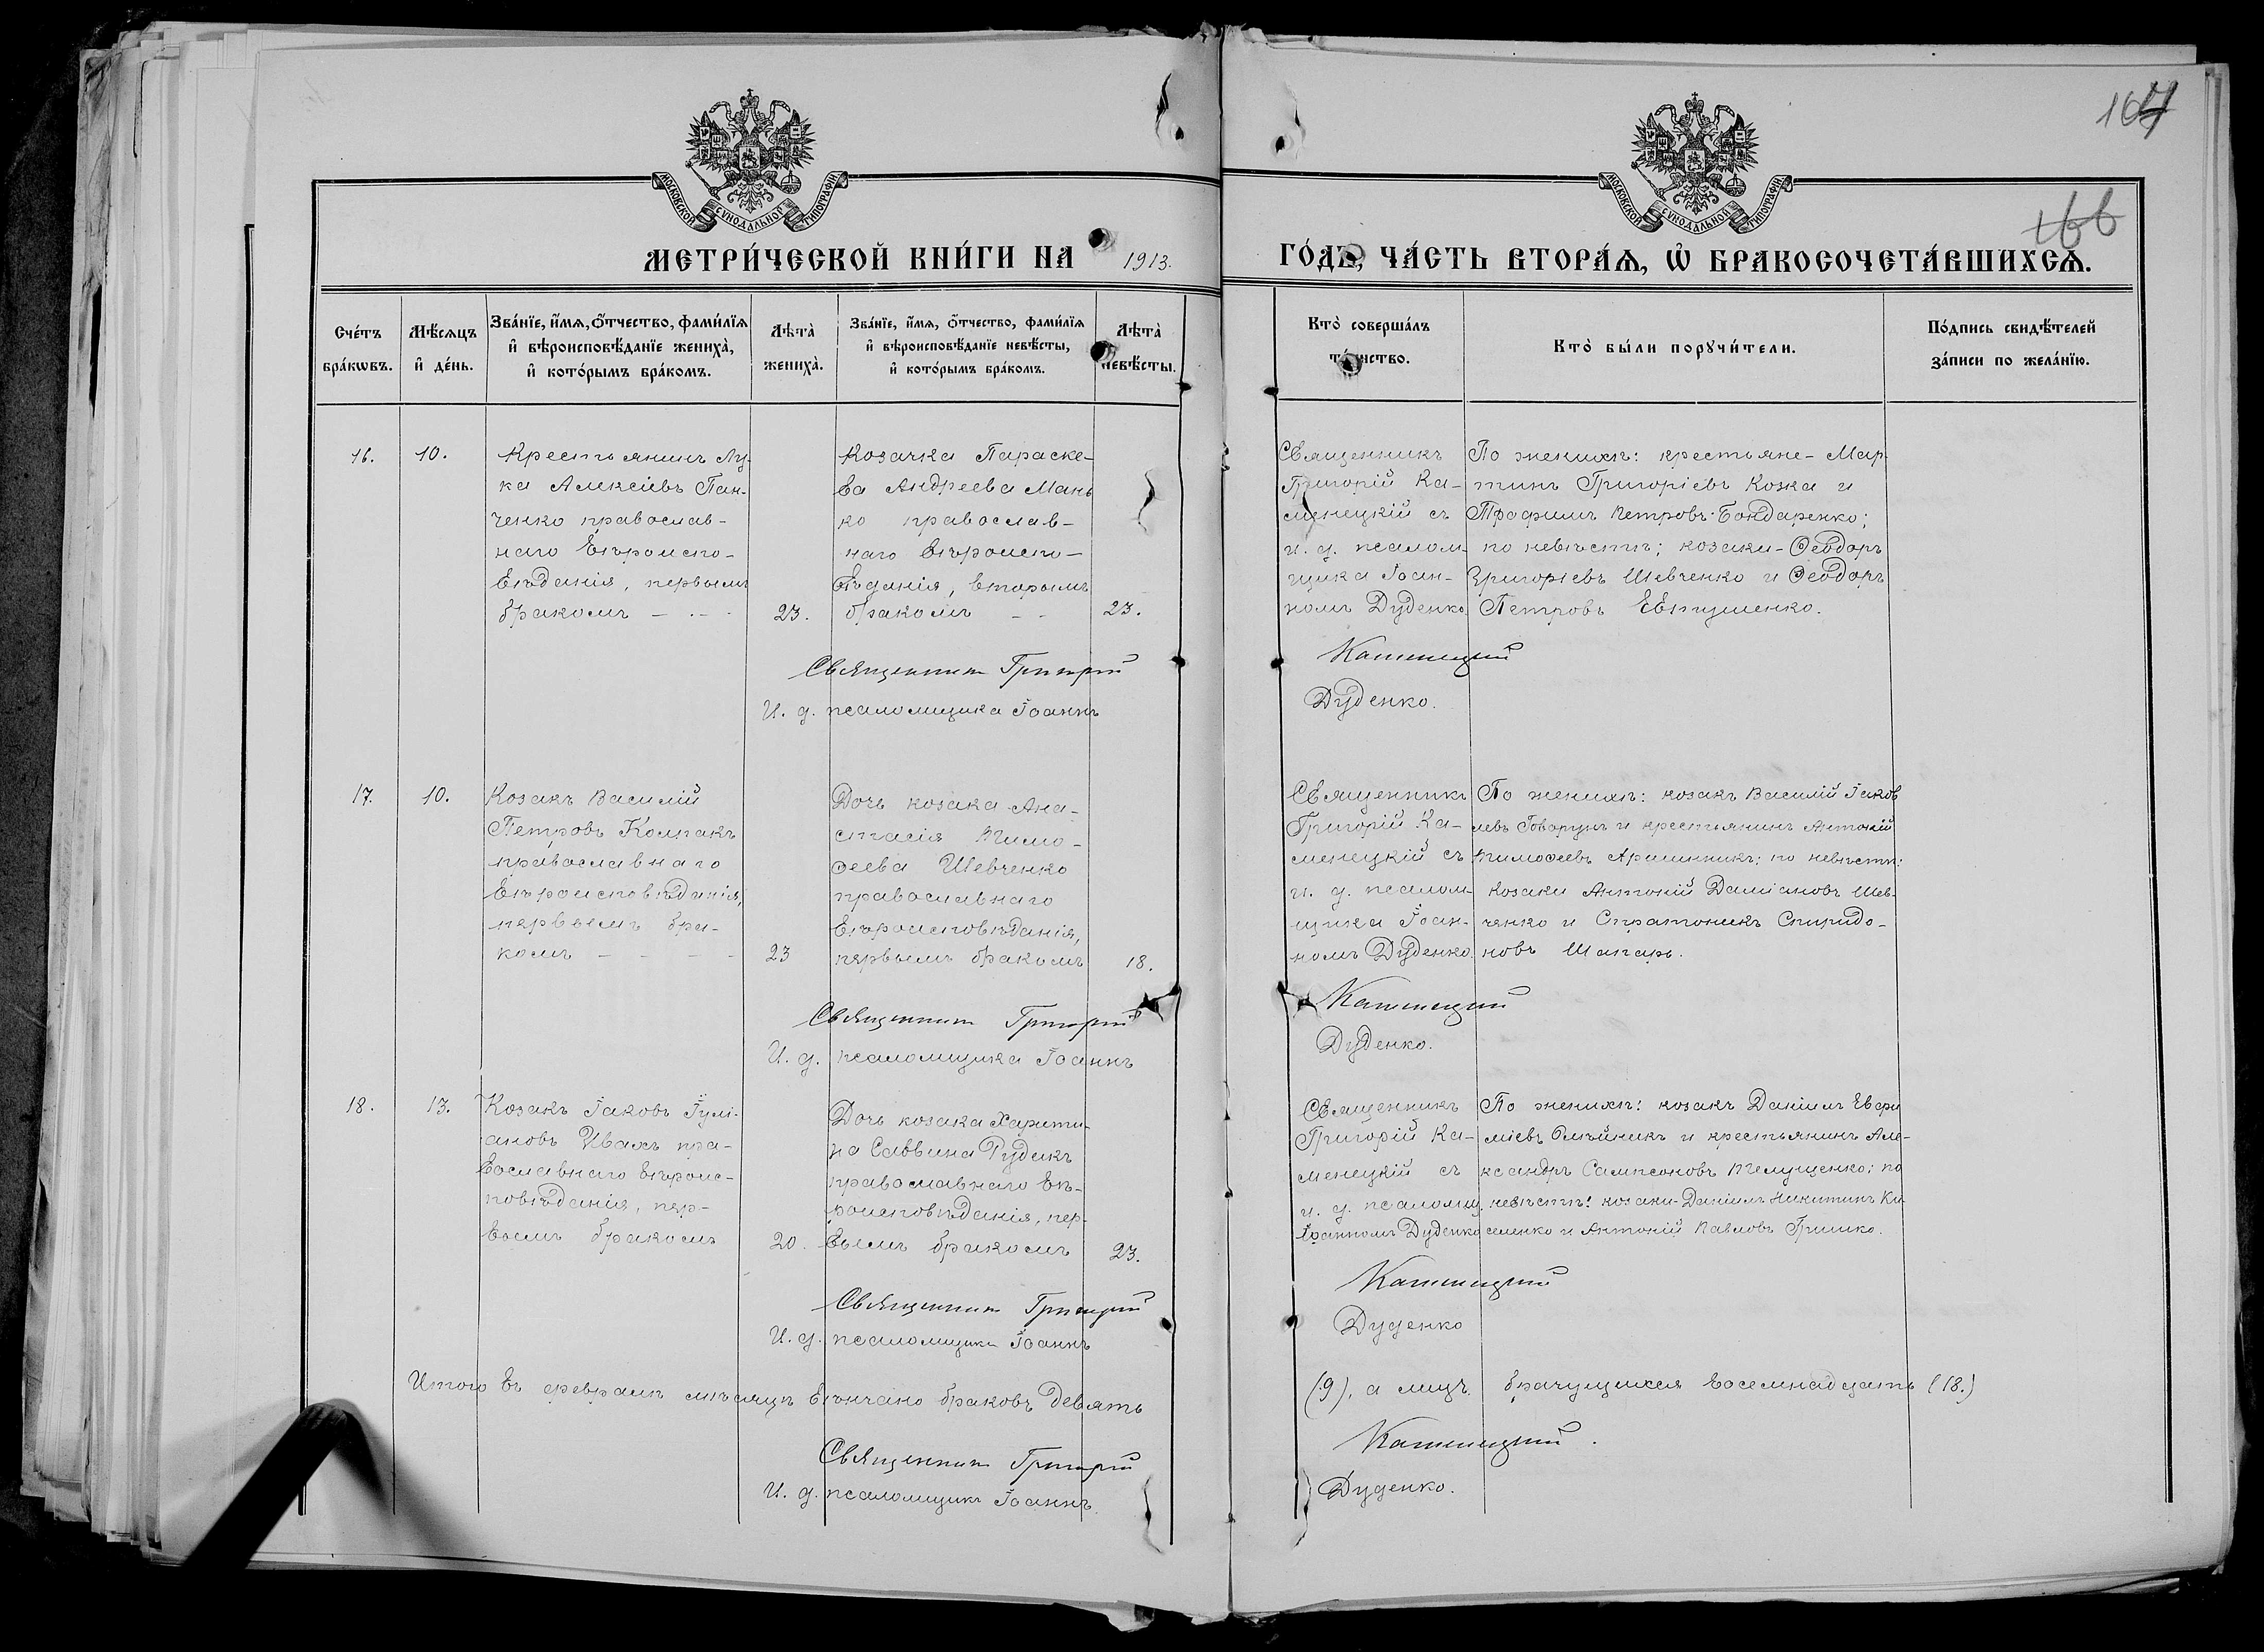 164
166
МОСКОВСКОЙ СѴНОДАЛЬНОЙ ТИПОГРАФІИ
МОСКОВСКОЙ СѴНОДАЛЬНОЙ ТИПОГРАФІИ
МЕТРИ́ЧЕСКОЙ КНИ́ГИ НА 1913. ГО́ДЪ, ЧА́СТЬ ВТОРА́Ѧ, Ѡ҆ БРАКОСОЧЕТА́ВШИХСѦ.
Сче́тъ
бра́кѡвъ.
Мѣ́сяцъ
и҆ де́нь.
Зва́нїе, и҆́мѧ, ѻ҆́тчество, фами́лїѧ
и҆ вѣроисповѣ́данїе жениха̀,
и҆ кото́рымъ бра́комъ.
Лѣта̀
жениха̀.
Зва́нїе, и҆́мѧ, ѻ҆́тчество, фами́лїѧ
и҆ вѣроисповѣ́данїе невѣ́сты,
и҆ кото́рымъ бра́комъ.
Лѣта̀
невѣ́сты.
Кто̀ соверша́лъ
та́инство.
Кто̀ бы́ли порꙋчи́тели.
По́дпись свидѣ́телей
за́писи по жела́нїю.
16.
10.
Крестьянинъ Лу-
ка Алексіевъ Пан-
ченко православ-
наго вѣроиспо-
вѣданія, первымъ
бракомъ — · — ·
23.
Козачка Параске-
ва Андреева Мань
ко православ-
наго вѣроиспо-
вѣданія, вторымъ
бракомъ — —
23.
Священникъ
Григорій Ка-
менецкій съ
и. д. псалом-
щика Іоан-
номъ Дуденко
По женихѣ: крестьяне - Мар-
тинъ Григоріевъ Кожа и
Трофимъ Петровъ Бондаренко;
по невѣстѣ; козаки - Ѳеодоръ
Григоріевъ Шевченко и Ѳеодоръ
Петровъ Евтушенко.
Священникъ Григорій Каменецкій
И. д. псаломщика Іоаннъ Дуденко.
17.
10.
Козакъ Василій
Петровъ Колпакъ
православнаго
вѣроисповѣданія,
первымъ бра-
комъ — — — —
23
Дочь козака Ана-
стасія Тимо-
ѳеева Шевченко
православнаго
вѣроисповѣданія,
первымъ бракомъ
18.
Священникъ
Григорій Ка-
менецкій съ
и. д. псалом-
щика Іоан-
номъ Дуденко
По женихѣ: козакъ Василій Іаков
левъ Говорунъ и крестьянинъ Антоній
Тимоѳеевъ; по невѣстѣ:
козаки Антоній Даміановъ Шев-
ченко и Стратоникъ Спиридо-
новъ Шапарь.
Священникъ Григорій Каменецкій
И. д. псаломщика Іоаннъ Дуденко.
18.
13.
Козакъ Іаковъ Іулі-
ановъ Ивахъ пра-
вославнаго вѣроис-
повѣданія, пер-
вымъ бракомъ
20.
Дочь козака Харити-
на Саввина Рудикъ
православнаго вѣ-
роисповѣданія, пер-
вымъ бракомъ
23.
Священникъ
Григорій Ка-
менецкій съ
и. д. псаломщ.
Іоанномъ Дуденко
По женихѣ: козакъ Даніилъ Евфи
міевъ Олѣйникъ и крестьянинъ Але-
ксандръ Сампсоновъ Телущенко; по
невѣстѣ: козаки - Даніилъ Никитинъ Ки-
селенко и Антоній Павловъ Гришко.
Священникъ Григорій Каменецкій
И. д. псаломщика Іоаннъ Дуденко
Итого въ февралѣ мѣсяцѣ вѣнчано браковъ девять (9), а лицъ брачущихся восемнадцать (18.)
Священникъ Григорій Каменецкій.
И. д. псаломщика Іоаннъ Дуденко.